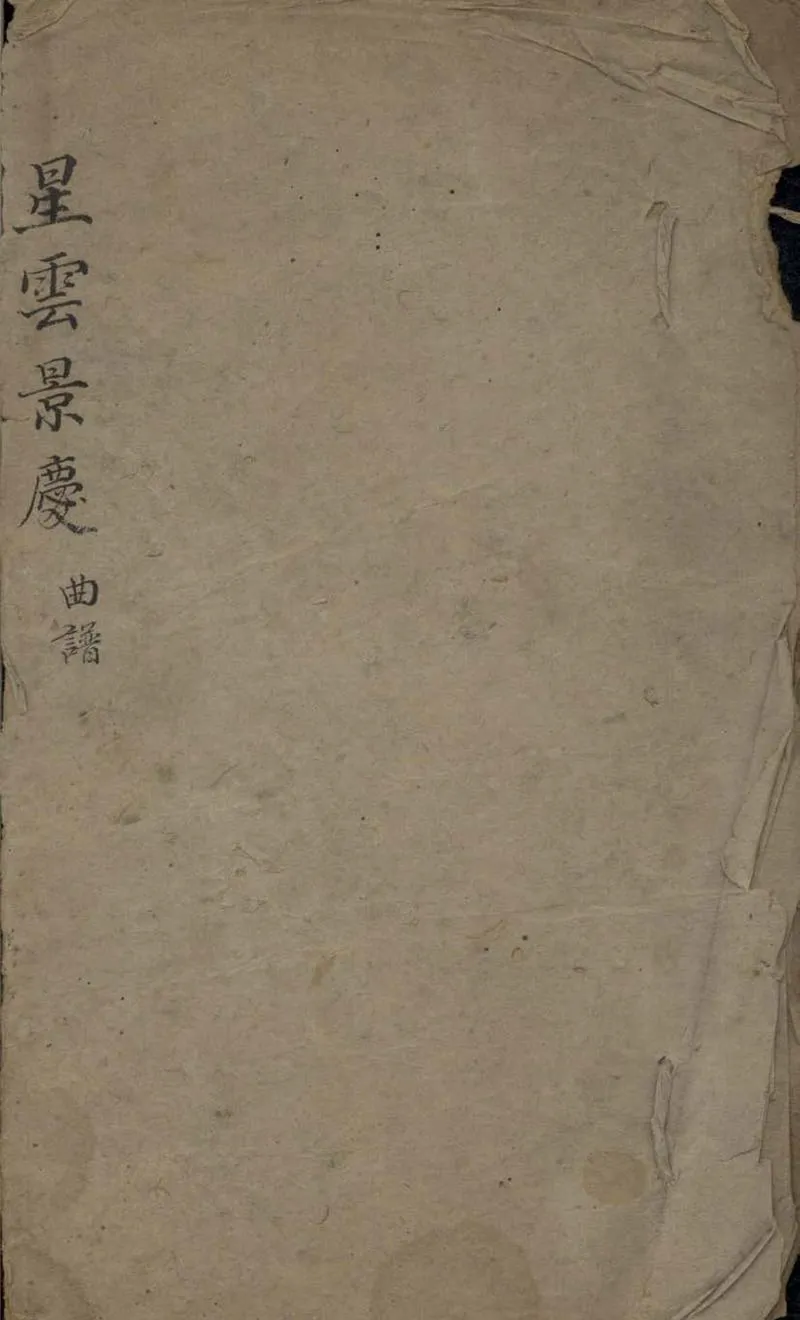 星雲景慶
曲譜